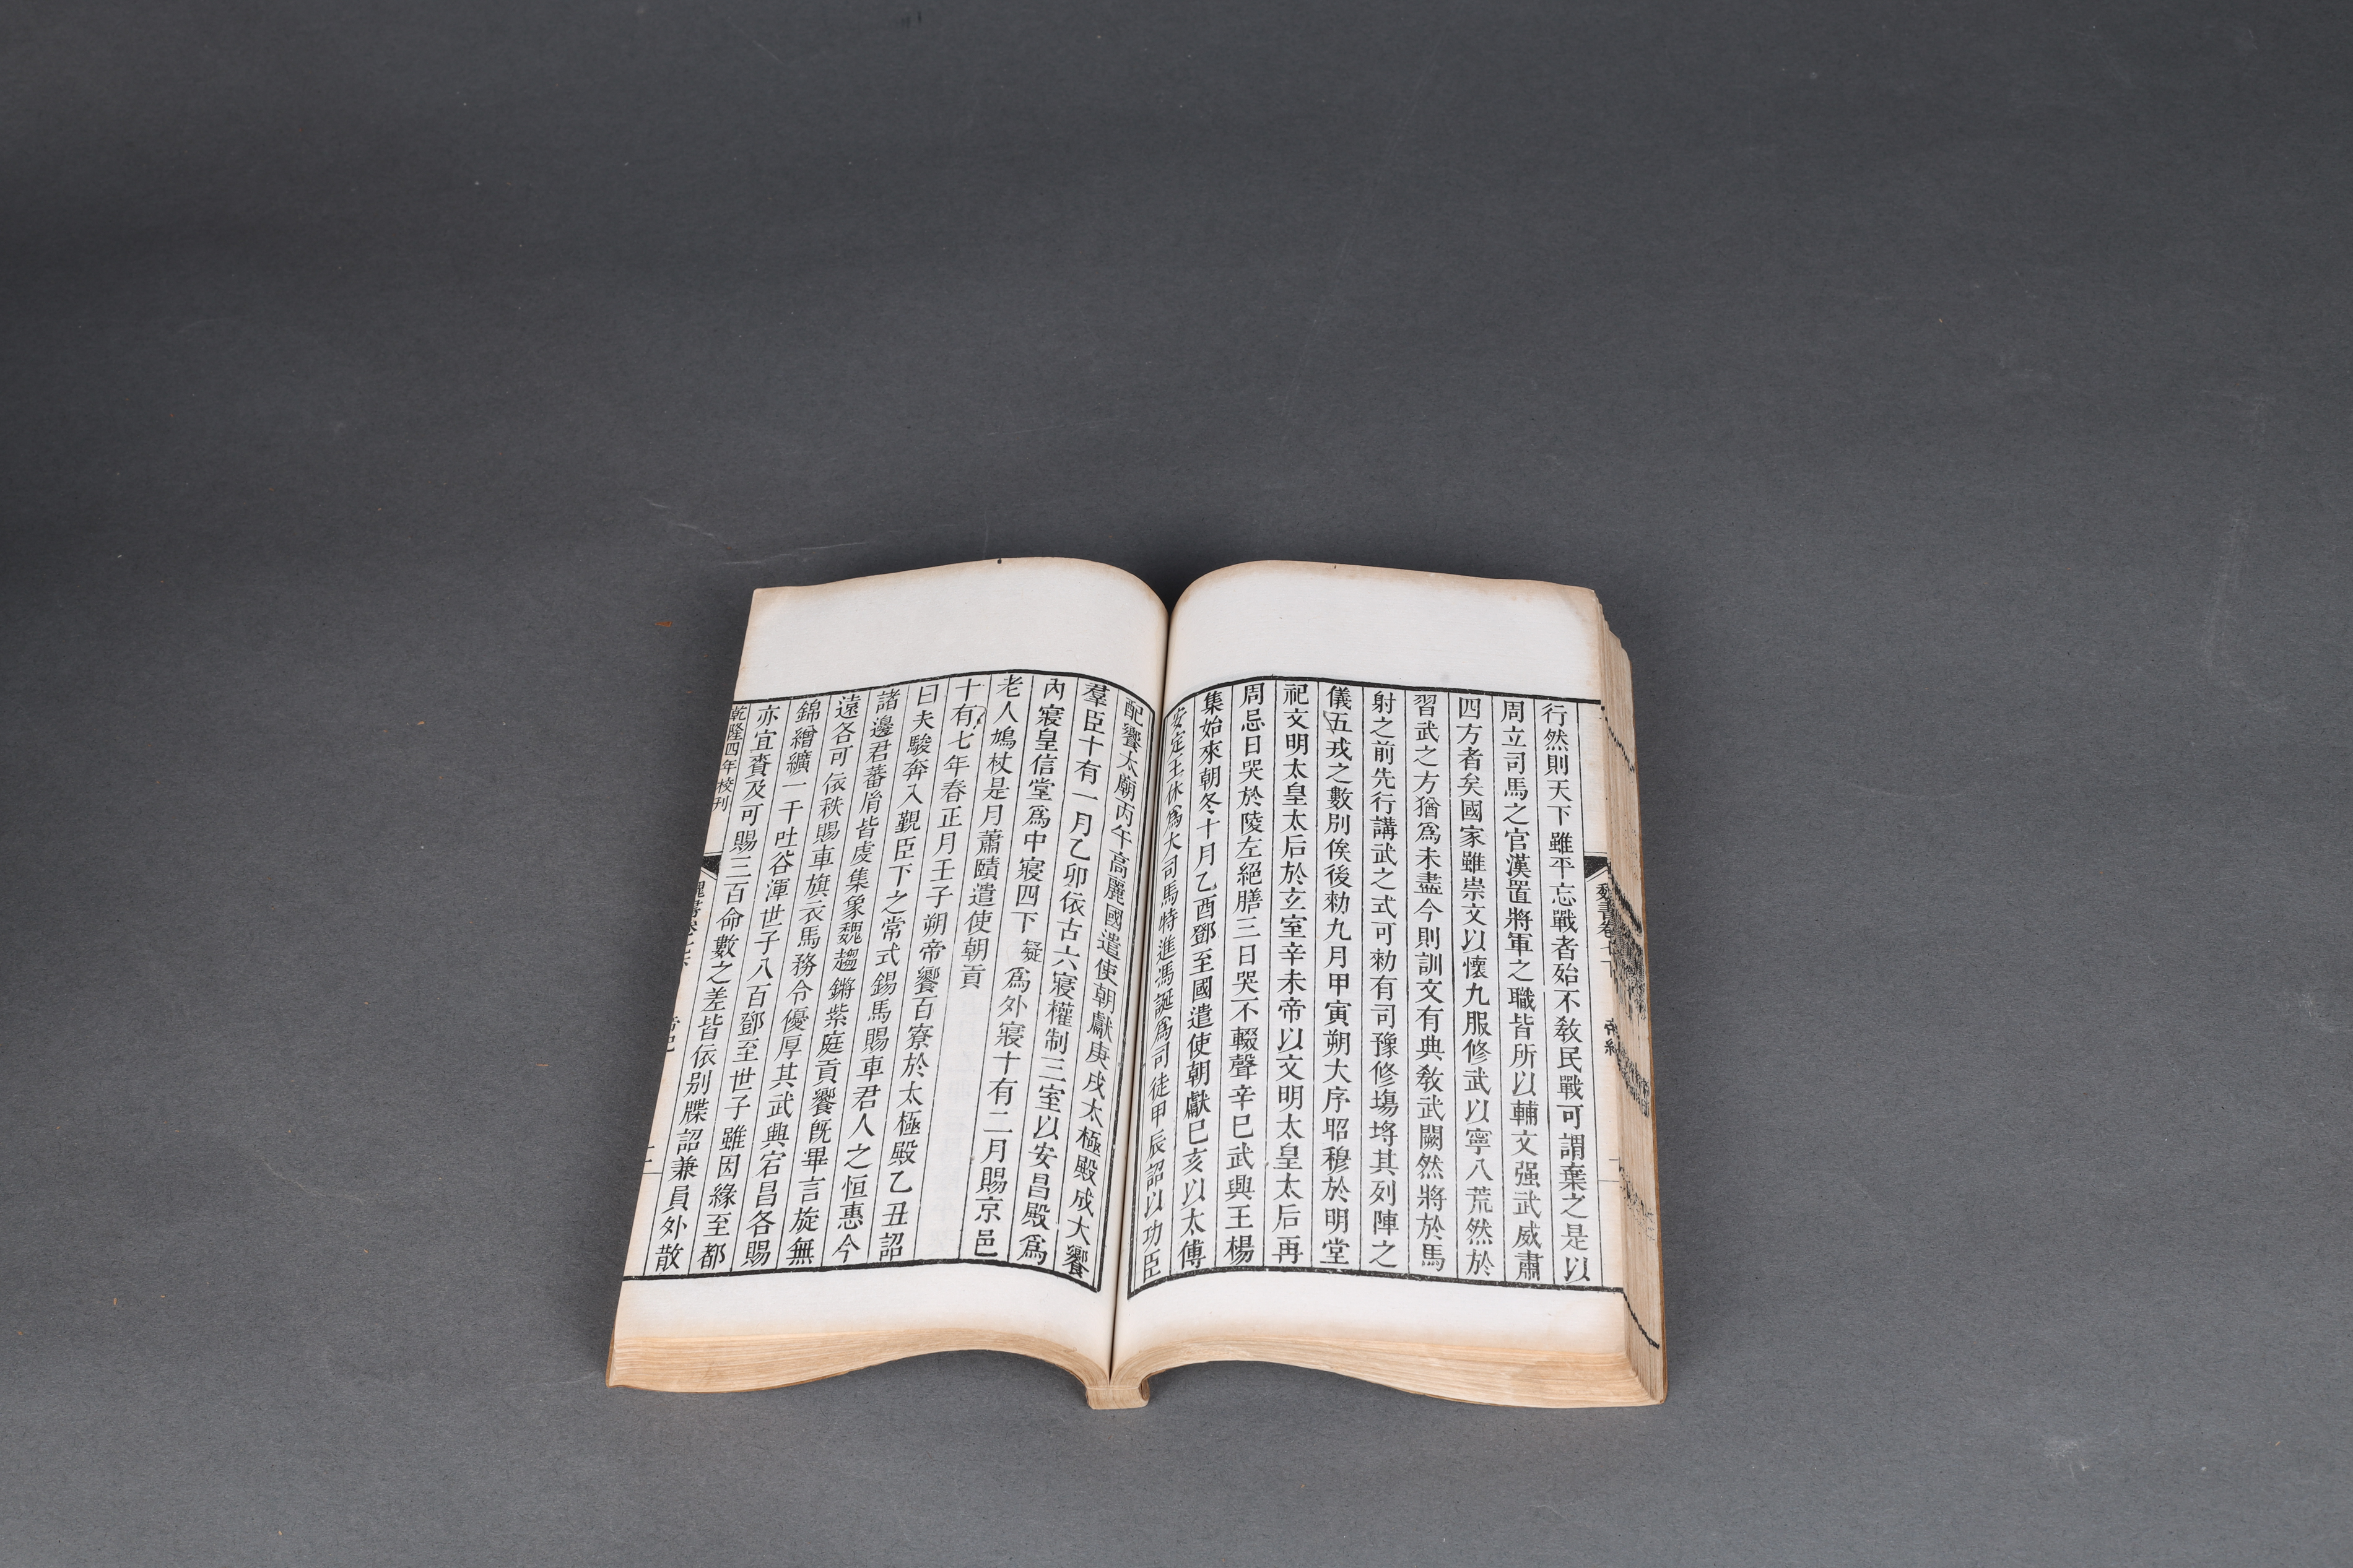 魏書卷七下
帝紀
行然則天下雖平忘戰者殆不敎民戰可謂棄之是以
周立司馬之官漢置將軍之職皆所以輔文强武威肅
四方者矣國家雖崇文以懷九服修武以寧八荒然於
習武之方猶爲未盡今則訓文有典敎武闕然將於馬
射之前先行講武之式可勑有司豫修塲埒其列陣之
儀五戎之數別俟後勑九月甲寅朔大序昭穆於明堂
祀文明太皇太后於玄室辛未帝以文明太皇太后再
周忌日哭於陵左絕膳三日哭不輟聲辛巳武興王楊
集始來朝冬十月乙酉鄧至國遣使朝獻巳亥以太傅
安定王休爲大司馬特進馮誕爲司徒甲辰詔以功臣
配饗太廟丙午高麗國遣使朝獻庚戌太極殿成大饗
羣臣十有一月乙卯依古六寢權制三室以安昌殿爲
內寢皇信堂爲中寢四下疑爲外寢十有二月賜京邑
老人鳩杖是月蕭賾遣使朝貢
十有七年春正月壬子朔帝饗百寮於太極殿乙丑詔
曰夫駿奔入覲臣下之常式錫馬賜車君人之恒惠今
諸邊君蕃胤皆虔集象魏趨鏘紫庭貢饗旣畢言旋無
遠各可依秩賜車旗衣馬務令優厚其武興宕昌各賜
錦繒纊一千吐谷渾世子八百鄧至世子雖因緣至都
亦宜賚及可賜三百命數之差皆依別牒詔兼員外散
乾隆四年校刊